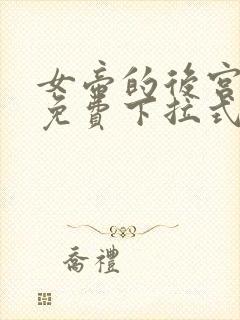 女帝的後宮
免費下拉式
喬禮